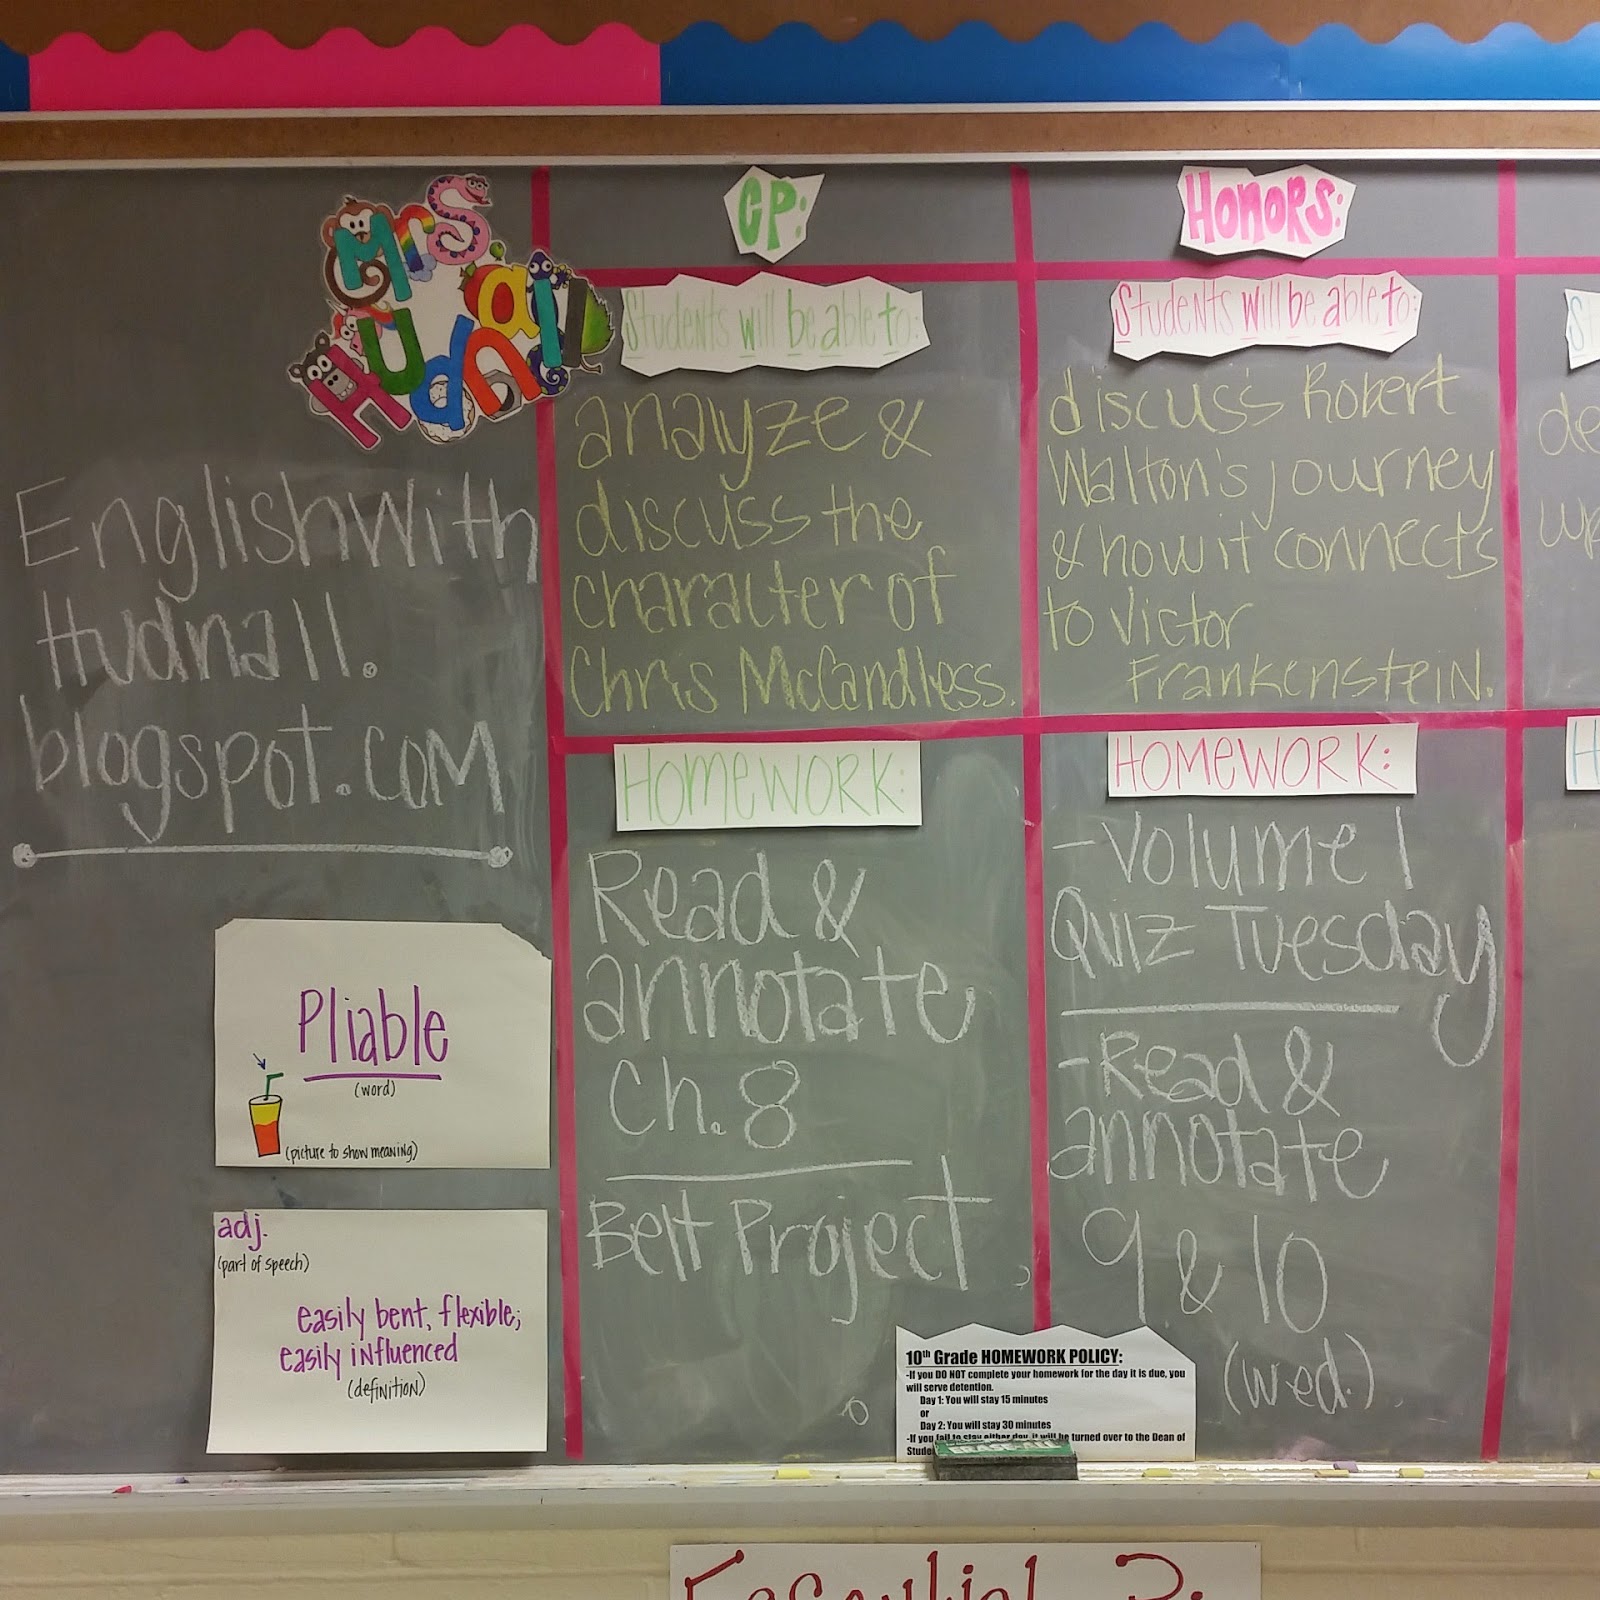 Mrs.
Hudnall
Englishwith
Hudnall.
blogspot.com
Pliable
(word)
(picture to show meaning)
adj.
(part of speech)
easily bent, flexible;
easily influenced
(definition)
CP:
Students will be able to:
analyze &
discuss the
character of
Chris McCandless.
HOMEWORK:
Read &
annotate
Ch. 8
Belt Project
HONORS:
Students will be able to:
discuss Robert
Walton's journey
& how it connects
to Victor
Frankenstein.
HOMEWORK:
- Volume 1
Quiz Tuesday
- Read &
annotate
9 & 10
(wed.)
10th Grade HOMEWORK POLICY:
-If you DO NOT complete your homework for the day it is due, you
will serve detention.
Day 1: You will stay 15 minutes
or
Day 2: You will stay 30 minutes
-If you fail to stay either day, it will be turned over to the Dean of
S
de
up
H
Essential ?: